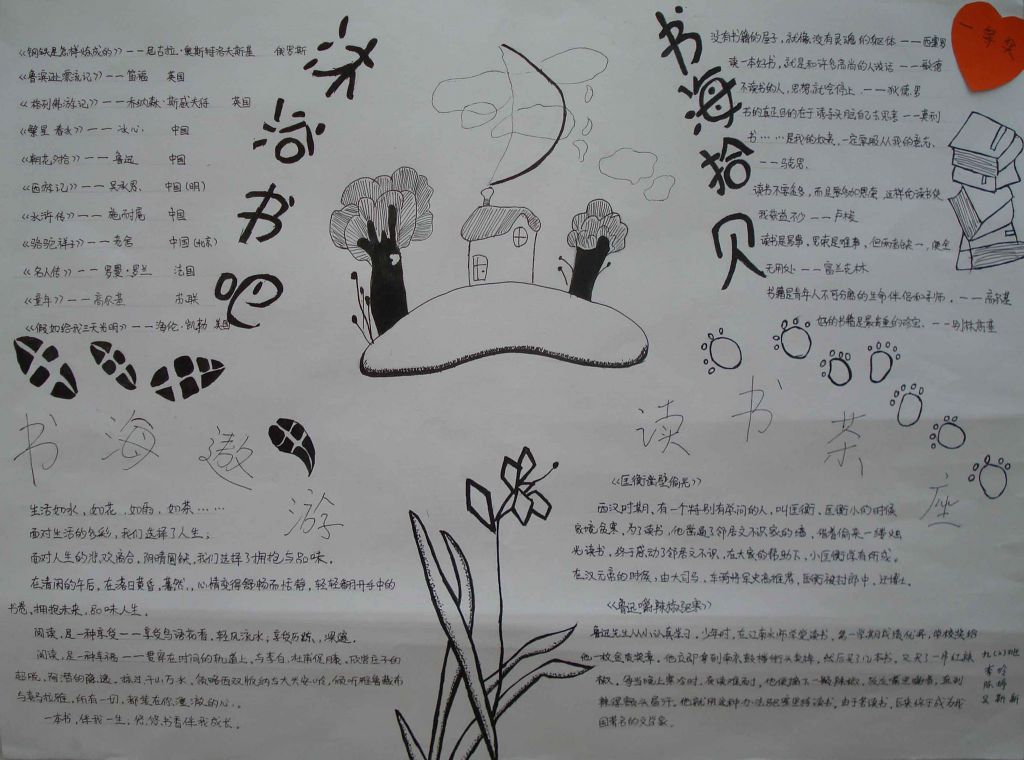 《钢铁是怎样炼成的》——尼古拉·奥斯特洛夫斯基 俄罗斯
《鲁滨逊漂流记》——笛福 英国
《格列佛游记》——乔纳森·斯威夫特 英国
《繁星 春水》——冰心 中国
《朝花夕拾》——鲁迅 中国
《西游记》——吴承恩 中国(明)
《水浒传》——施耐庵 中国
《骆驼祥子》——老舍 中国(北京)
《名人传》——罗曼·罗兰 法国
《童年》——高尔基 苏联
《假如给我三天光明》——海伦·凯勒 美国
书吧
书海拾贝
一等奖
没有书籍的屋子,就像没有灵魂的躯体——西塞罗
读一本好书,就是和许多高尚的人谈话——歌德
不读书的人,思想就会停止——狄德罗
书的真正目的在于诱导头脑自己去思考——莫利
书……是我的奴隶,一定要服从我的意志、
——马克思、
读书不要贪多,而是要多加思索,这样的读书使
我获益不少——卢梭
读书是易事,思索是难事,但两者缺一,便全
无用处——富兰克林
书籍是青年人不可分离的生命伴侣和导师、——高尔基
好的书籍是最贵重的珍宝、——别林斯基
书海遨游
生活如水,如花,如雨,如茶……
面对生活的多彩,我们选择了人生;
面对人生的悲欢离合,阴晴圆缺,我们选择了拥抱与品味。
在清闲的午后,在落日黄昏,蓦然,心情变得舒畅而恬静,轻轻翻开手中的
书卷,拥抱未来,品味人生。
阅读,是一种享受——享受鸟语花香,轻风流水;享受历练,深邃。
阅读,是一种幸福——贯穿在时间的轨道上,与李白、杜甫促膝,欣赏庄子的
超脱,陶潜的隐逸,
与喜马拉雅,所有一切,都装在你澄澈的心。
一本书,伴我一生;悠悠书香伴我成长。
读书茶座
《匡衡凿壁偷光》
西汉时期,有一个特别有学问的人,叫匡衡,匡衡小的时候
家境贫寒,为了读书,他凿通了邻居文不识家的墙,借着偷来一缕烛
光读书,终于感动了邻居文不识,在大家的帮助下,小匡衡学有所成。
在汉元帝的时候,由大司马、车骑将军史高推荐,匡衡被封郎中,迁博士。
《鲁迅嚼辣椒驱寒》
鲁迅先生从小认真学习,少年时,在江南水师学堂读书,第一学期成绩优异,学校奖给
他一枚金质奖章,他立即拿到南京鼓楼街头卖掉,然后买了几本书,又买了一串红辣
椒,每当晚上寒冷时,夜读难耐,他便摘下一颗辣椒,放在嘴里嚼着,直到
辣得额头冒汗,他就用这种办法驱寒坚持读书,由于苦读书,后来终于成为我
国著名的文学家。